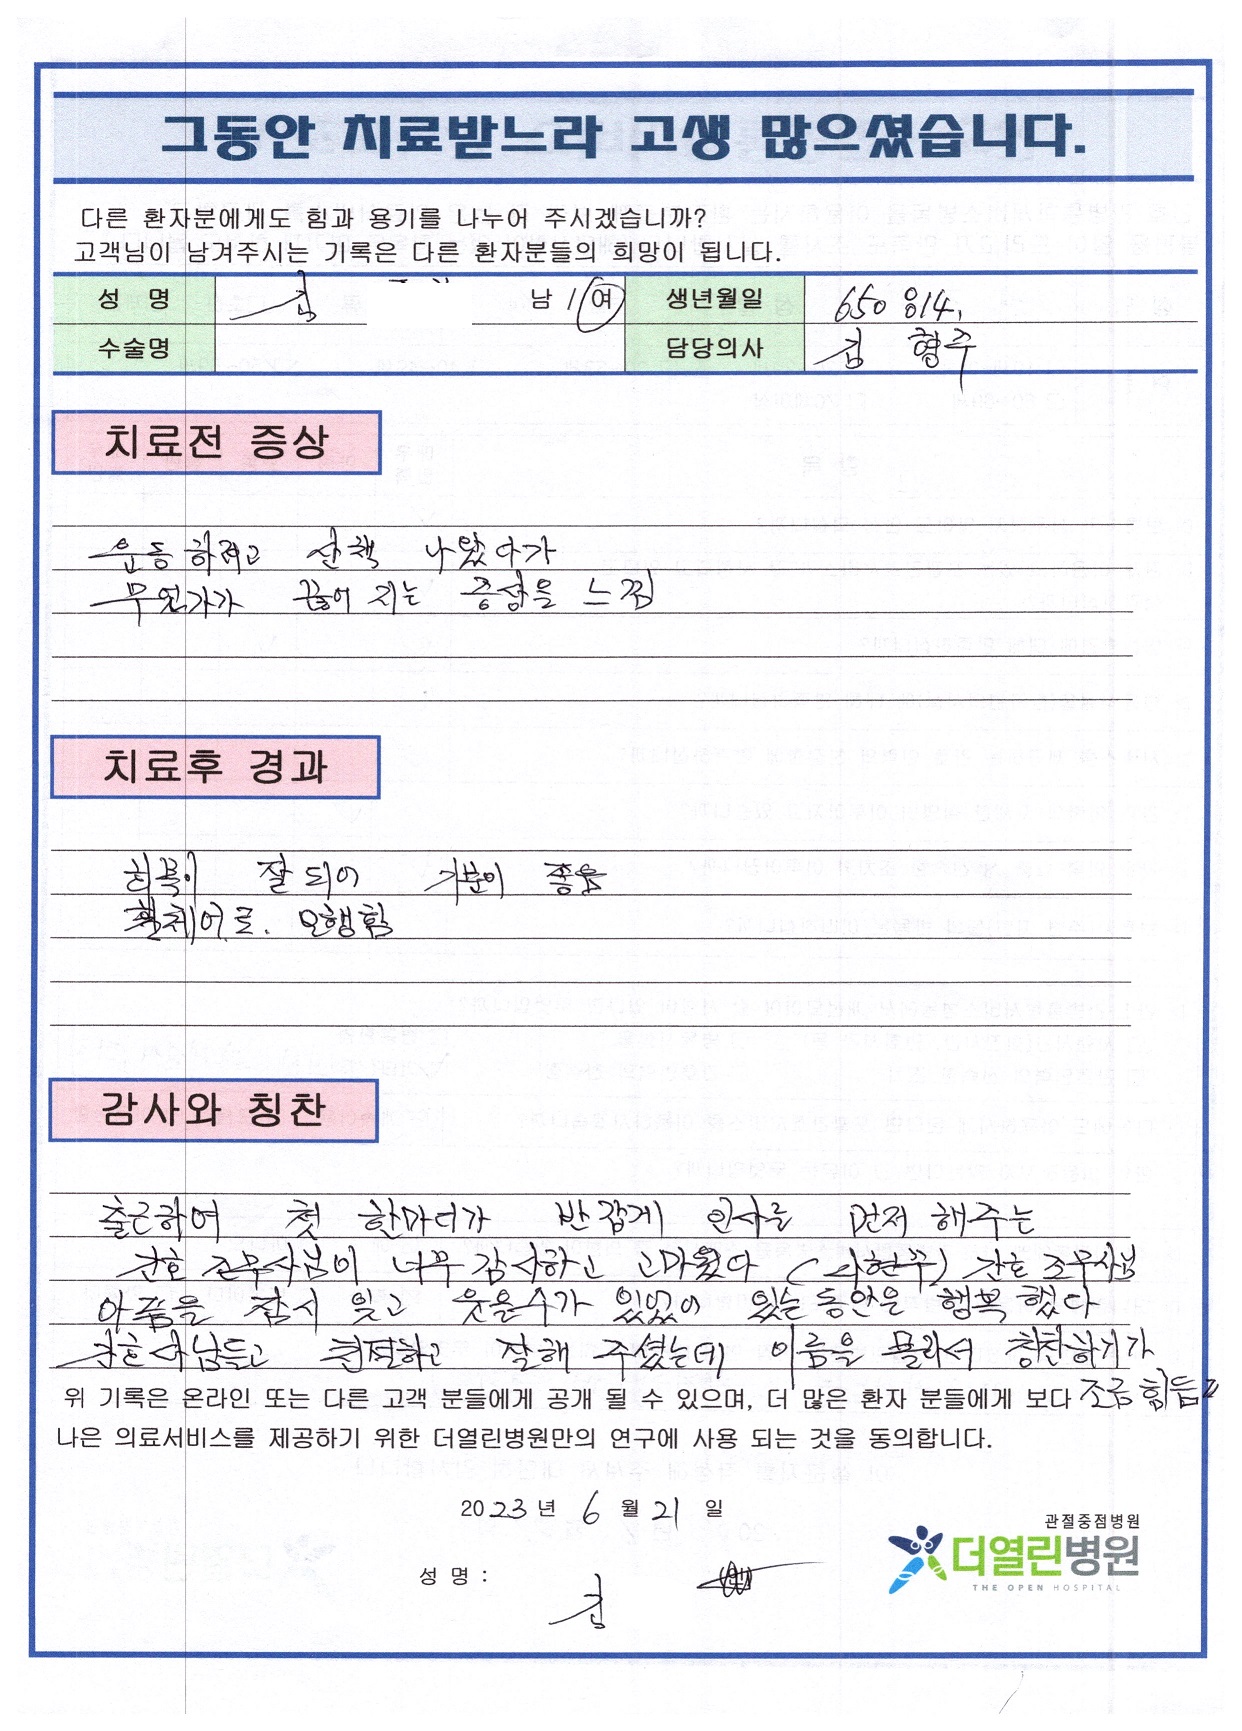 그동안 치료받느라 고생 많으셨습니다.
다른 환자분에게도 힘과 용기를 나누어 주시겠습니까?
고객님이 남겨주시는 기록은 다른 환자분들의 희망이 됩니다.
성 명 김 남 / 여 생년월일 650814.
수술명 담당의사 김 형주
치료전 증상
운동 하려고 산책 나왔다가
무언가가 끊어 지는 증상을 느낌
치료후 경과
회복이 잘 되어 기분이 좋음
휠체어로. 보행함
감사와 칭찬
출근하여 첫 한마디가 반갑게 인사를 먼저 해주는
간호 조무사님이 너무 감사하고 고마웠다 ( ) 간호 조무사님
아픔을 잠시 잊고 웃을수가 있었어 있는 동안은 행복 했다
간호사님들도 친절하고 잘해 주셨는데 이름을 몰라서 칭찬하기가
조금 힘듬
위 기록은 온라인 또는 다른 고객 분들에게 공개 될 수 있으며, 더 많은 환자 분들에게 보다
나은 의료서비스를 제공하기 위한 더열린병원만의 연구에 사용 되는 것을 동의합니다.
2023 년 6 월 21 일
관절중점병원
더열린병원
THE OPEN HOSPITAL
성 명 : 김 (인)